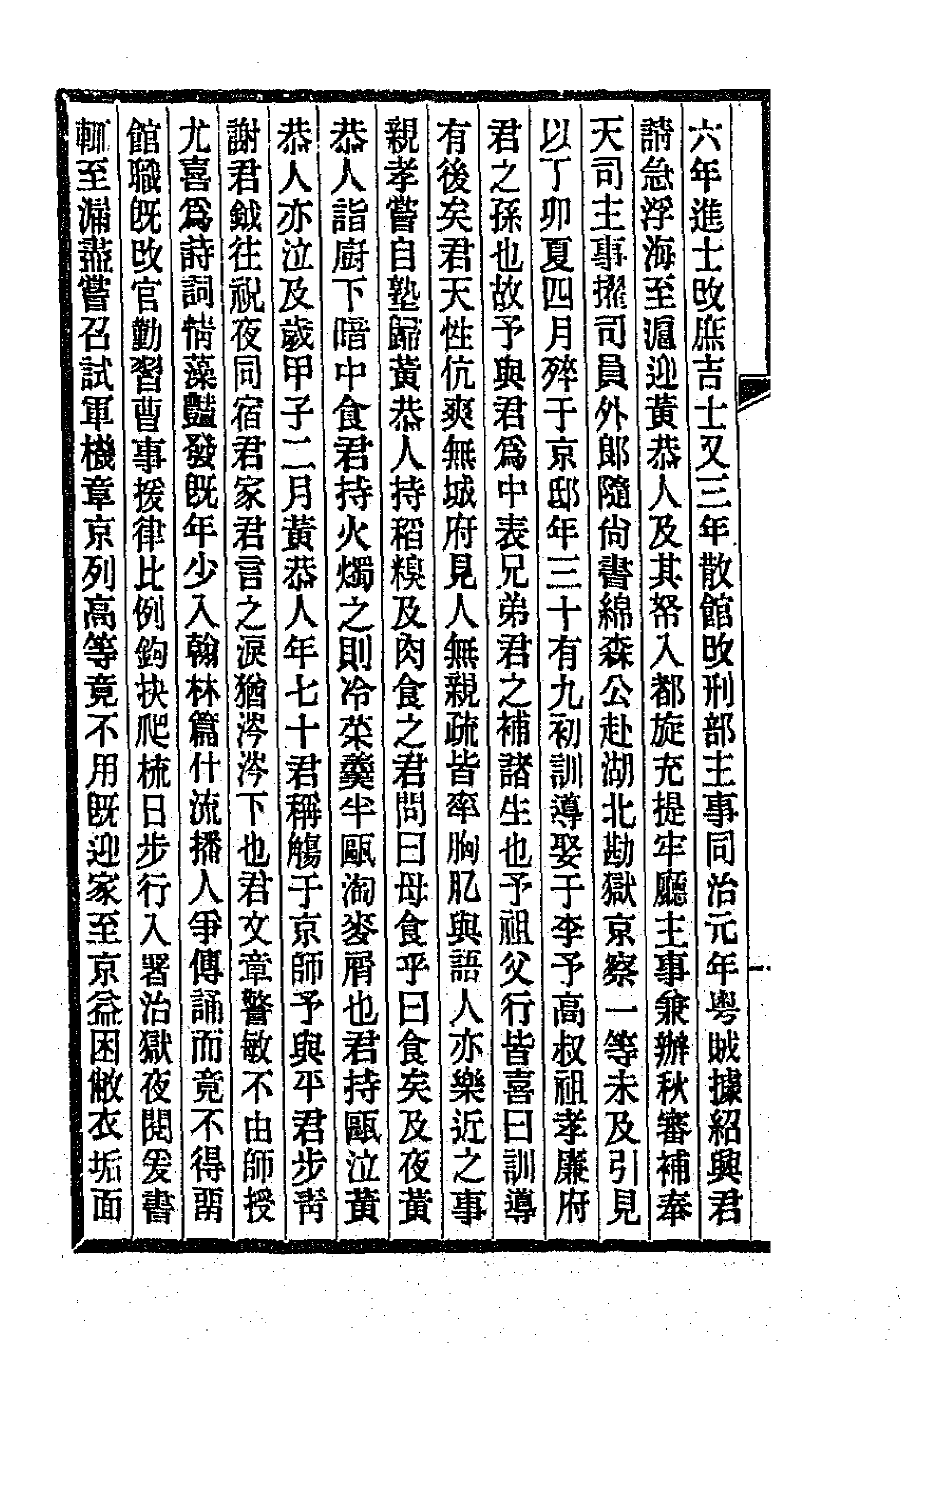 六年進士改庶吉士又三年散館改刑部主事同治元年粤賊據紹興君
請急浮海至滬迎黃恭人及其帑入都旋充提牢廳主事兼辦秋審補奉
天司主事擢司員外郎隨尙書綿森公赴湖北勘獄京察一等未及引見
以丁卯夏四月殚于京邸年三十有九初訓導娶于李予高叔祖孝廉府
君之孫也故予與君爲中表兄弟君之補諸生也予祖父行皆喜曰訓導
有後矣君天性伉爽無城府見人無親疏皆率胸肊與語人亦樂近之事
親孝嘗自塾歸黃恭人持稻糗及肉食之君問曰母食乎曰食矣及夜黃
恭人詣廚下暗中食君持火燭之則冷菜羹半甌淘麥屑也君持甌泣黃
恭人亦泣及歲甲子二月黃恭人年七十君稱觴于京師予與平君步靑
謝君鉞往祝夜同宿君家君言之淚猶涔涔下也君文章警敏不由師授
尤喜爲詩詞情藻豔發旣年少入翰林篇什流播人爭傳誦而竟不得畱
館職旣改官勤習曹事援律比例鉤抉爬梳日步行入署治獄夜閱爰書
輒至漏盡嘗召試軍機章京列高等竟不用旣迎家至京益困敝衣垢面